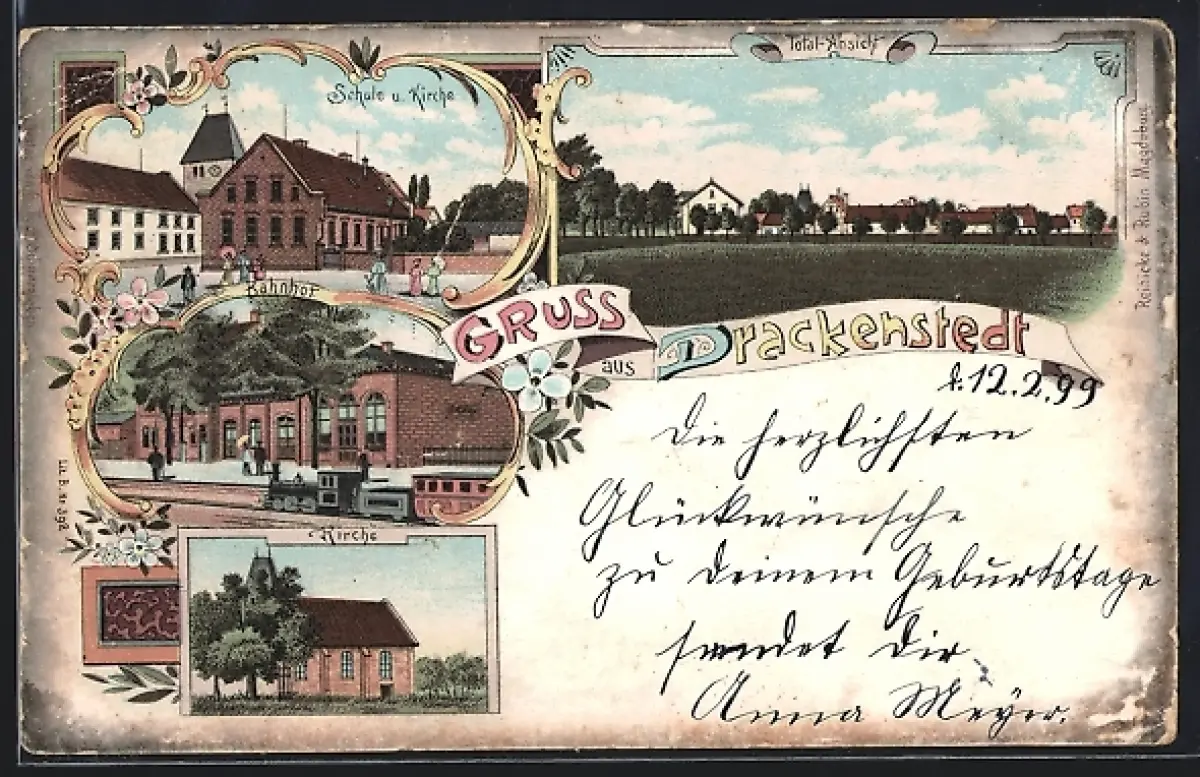 Total-Ansicht
Schule u. Kirche
Bahnhof
GRUSS
aus
Drackenstedt
d. 12.2.99
Die herzlichsten
Glückwünsche
zu deinem Geburtstage
sendet Dir
Anna Meyer.
Kirche
Lit. B. Nr 392
Reinicke & Rubin Magdeburg